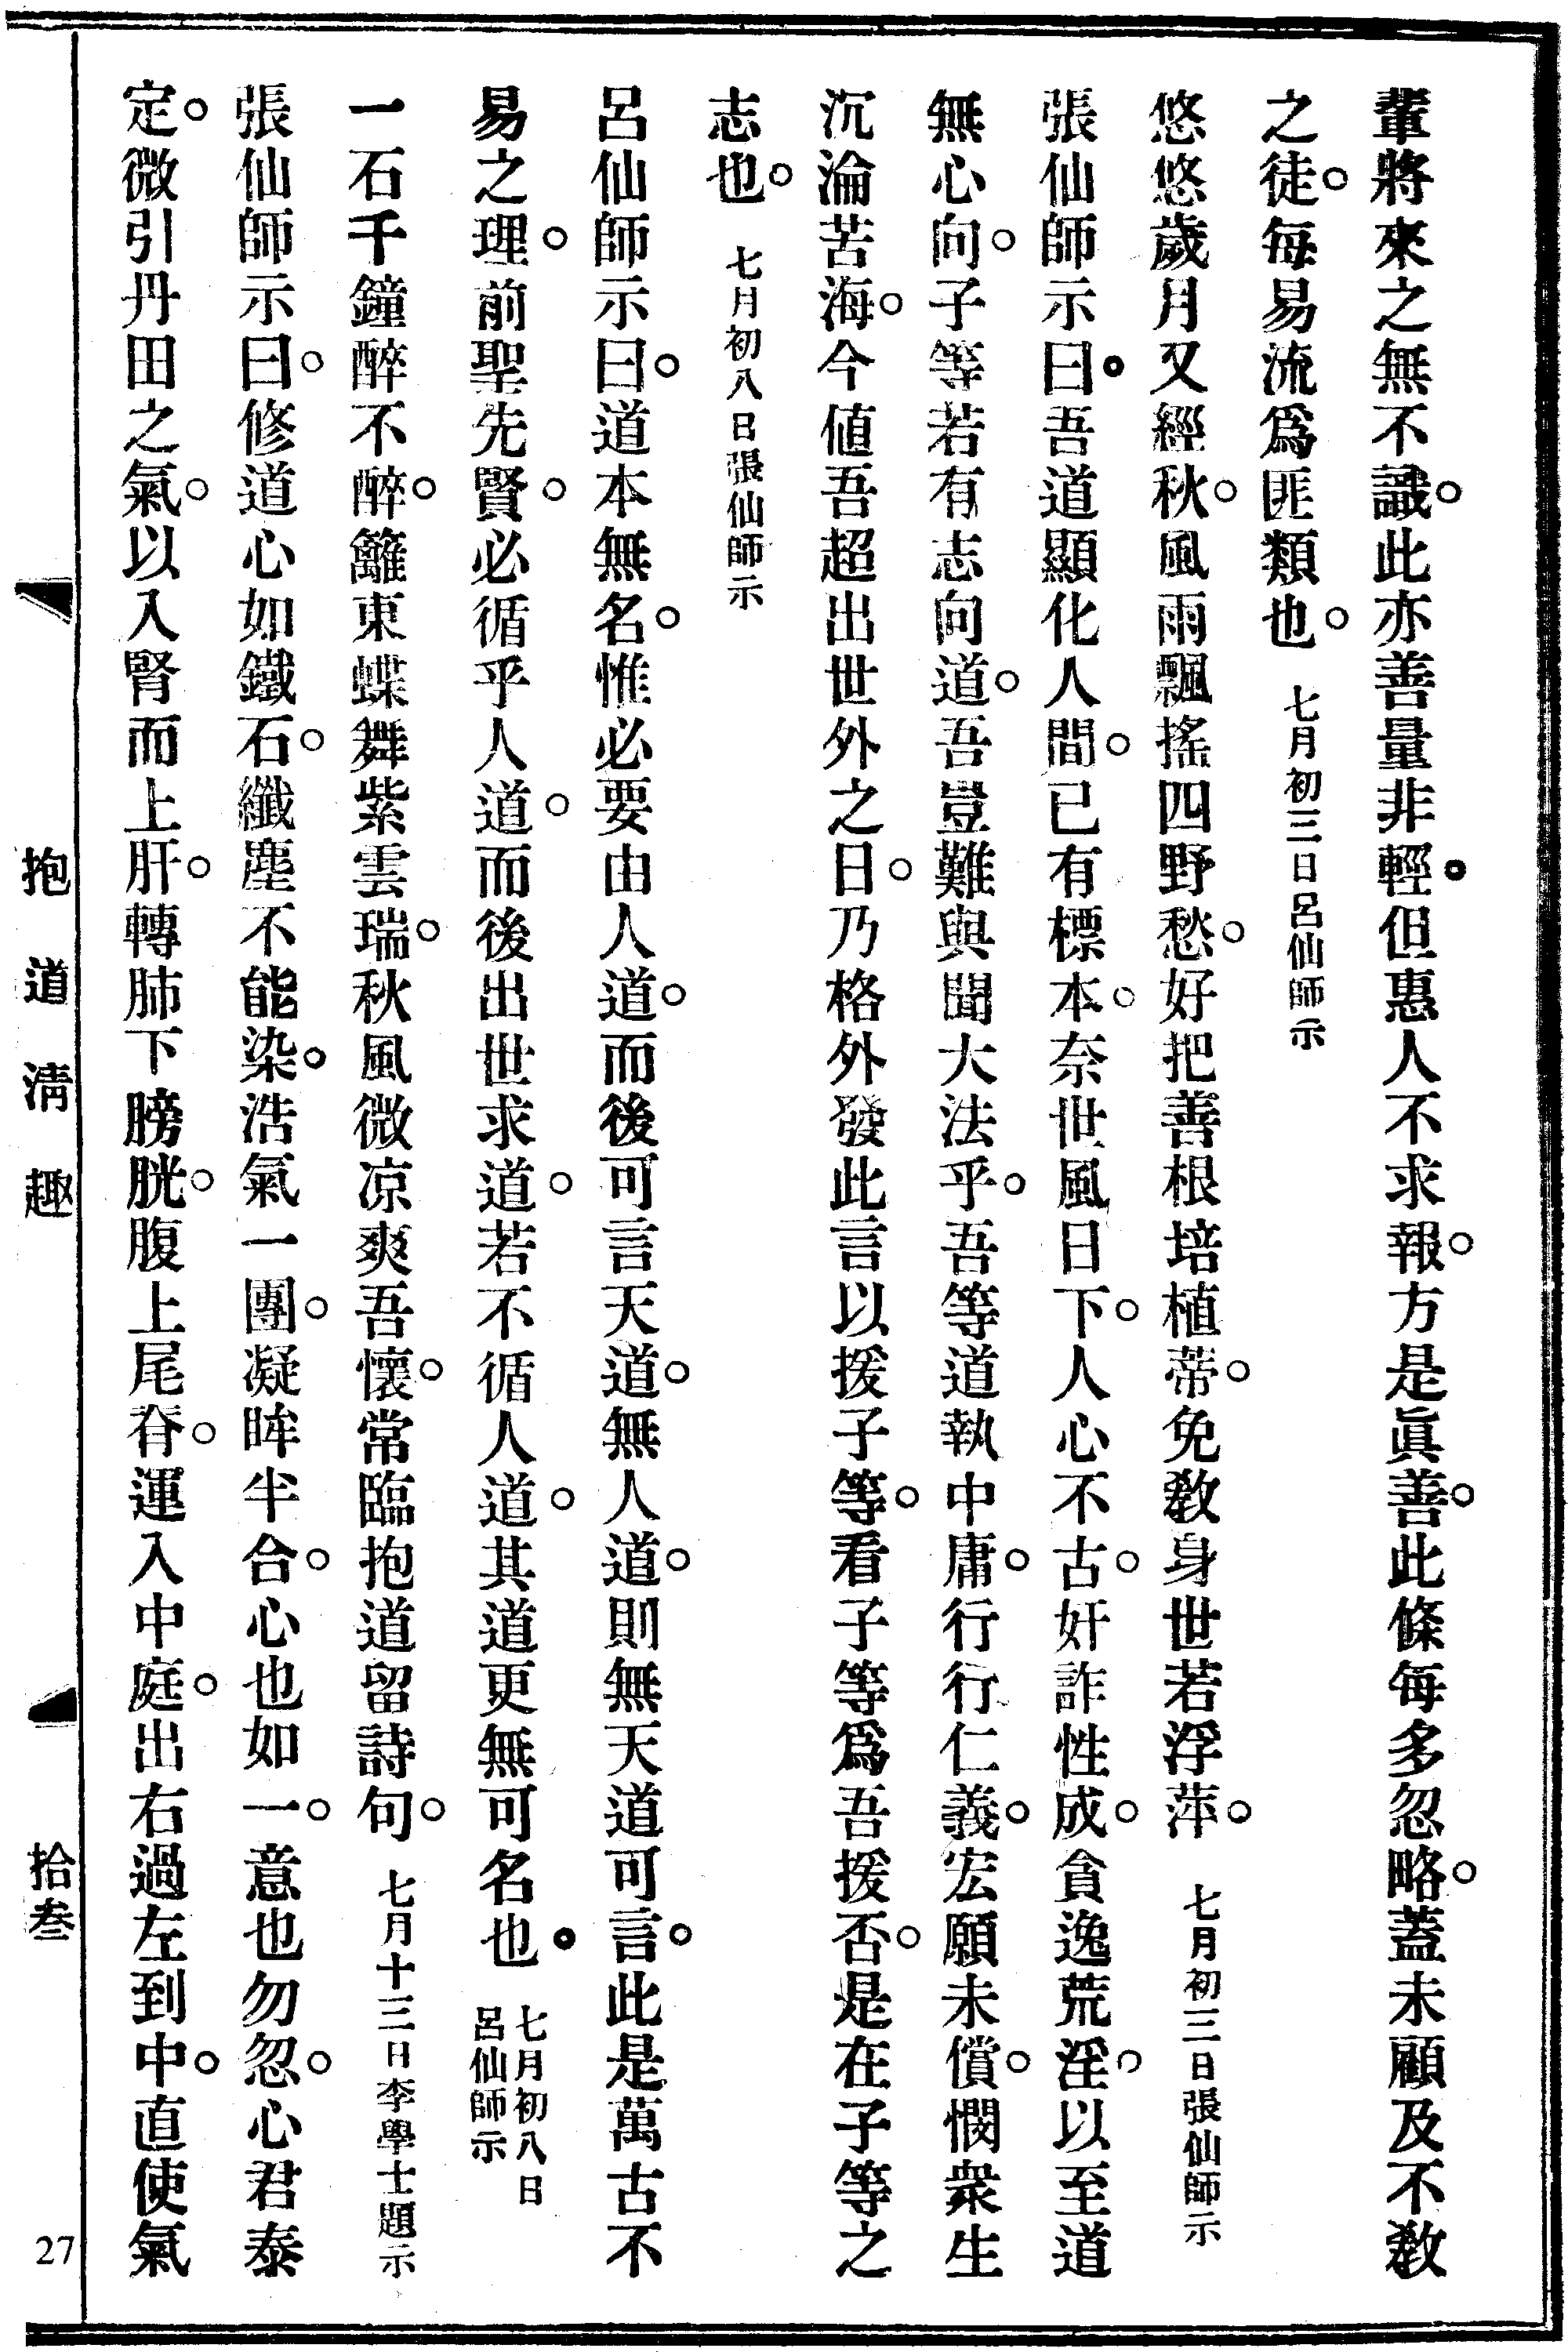 輩將來之無不識。此亦善量非輕。但惠人不求報。方是眞善。此條每多忽略。蓋未顧及不敎
之徒。每易流爲匪類也。 七月初三日呂仙師示
悠悠歲月又經秋。風雨飄搖四野愁。好把善根培植蒂。免敎身世若浮萍。 七月初三日張仙師示
張仙師示曰。吾道顯化人間。已有標本。奈世風日下。人心不古。奸詐性成。貪逸荒淫。以至道
無心向。子等若有志向道。吾豈難與聞大法乎。吾等道執中庸。行行仁義。宏願未償。憫衆生
沉淪苦海。今値吾超出世外之日。乃格外發此言以援子等。看子等爲吾援否。是在子等之
志也。 七月初八日張仙師示
呂仙師示曰。道本無名。惟必要由人道。而後可言天道。無人道。則無天道可言。此是萬古不
易之理。前聖先賢。必循乎人道。而後出世求道。若不循人道。其道更無可名也。 七月初八日呂仙師示
一石千鐘醉不醉。籬東蝶舞紫雲瑞。秋風微凉爽吾懷。常臨抱道留詩句。 七月十三日李學士題示
張仙師示曰。修道心如鐵石。纖塵不能染。浩氣一團。凝眸半合。心也如一。意也勿忽。心君泰
定。微引丹田之氣。以入腎而上肝。轉肺下膀胱。腹上尾脊。運入中庭。出右過左到中。直使氣
抱道淸趣
拾叁
27